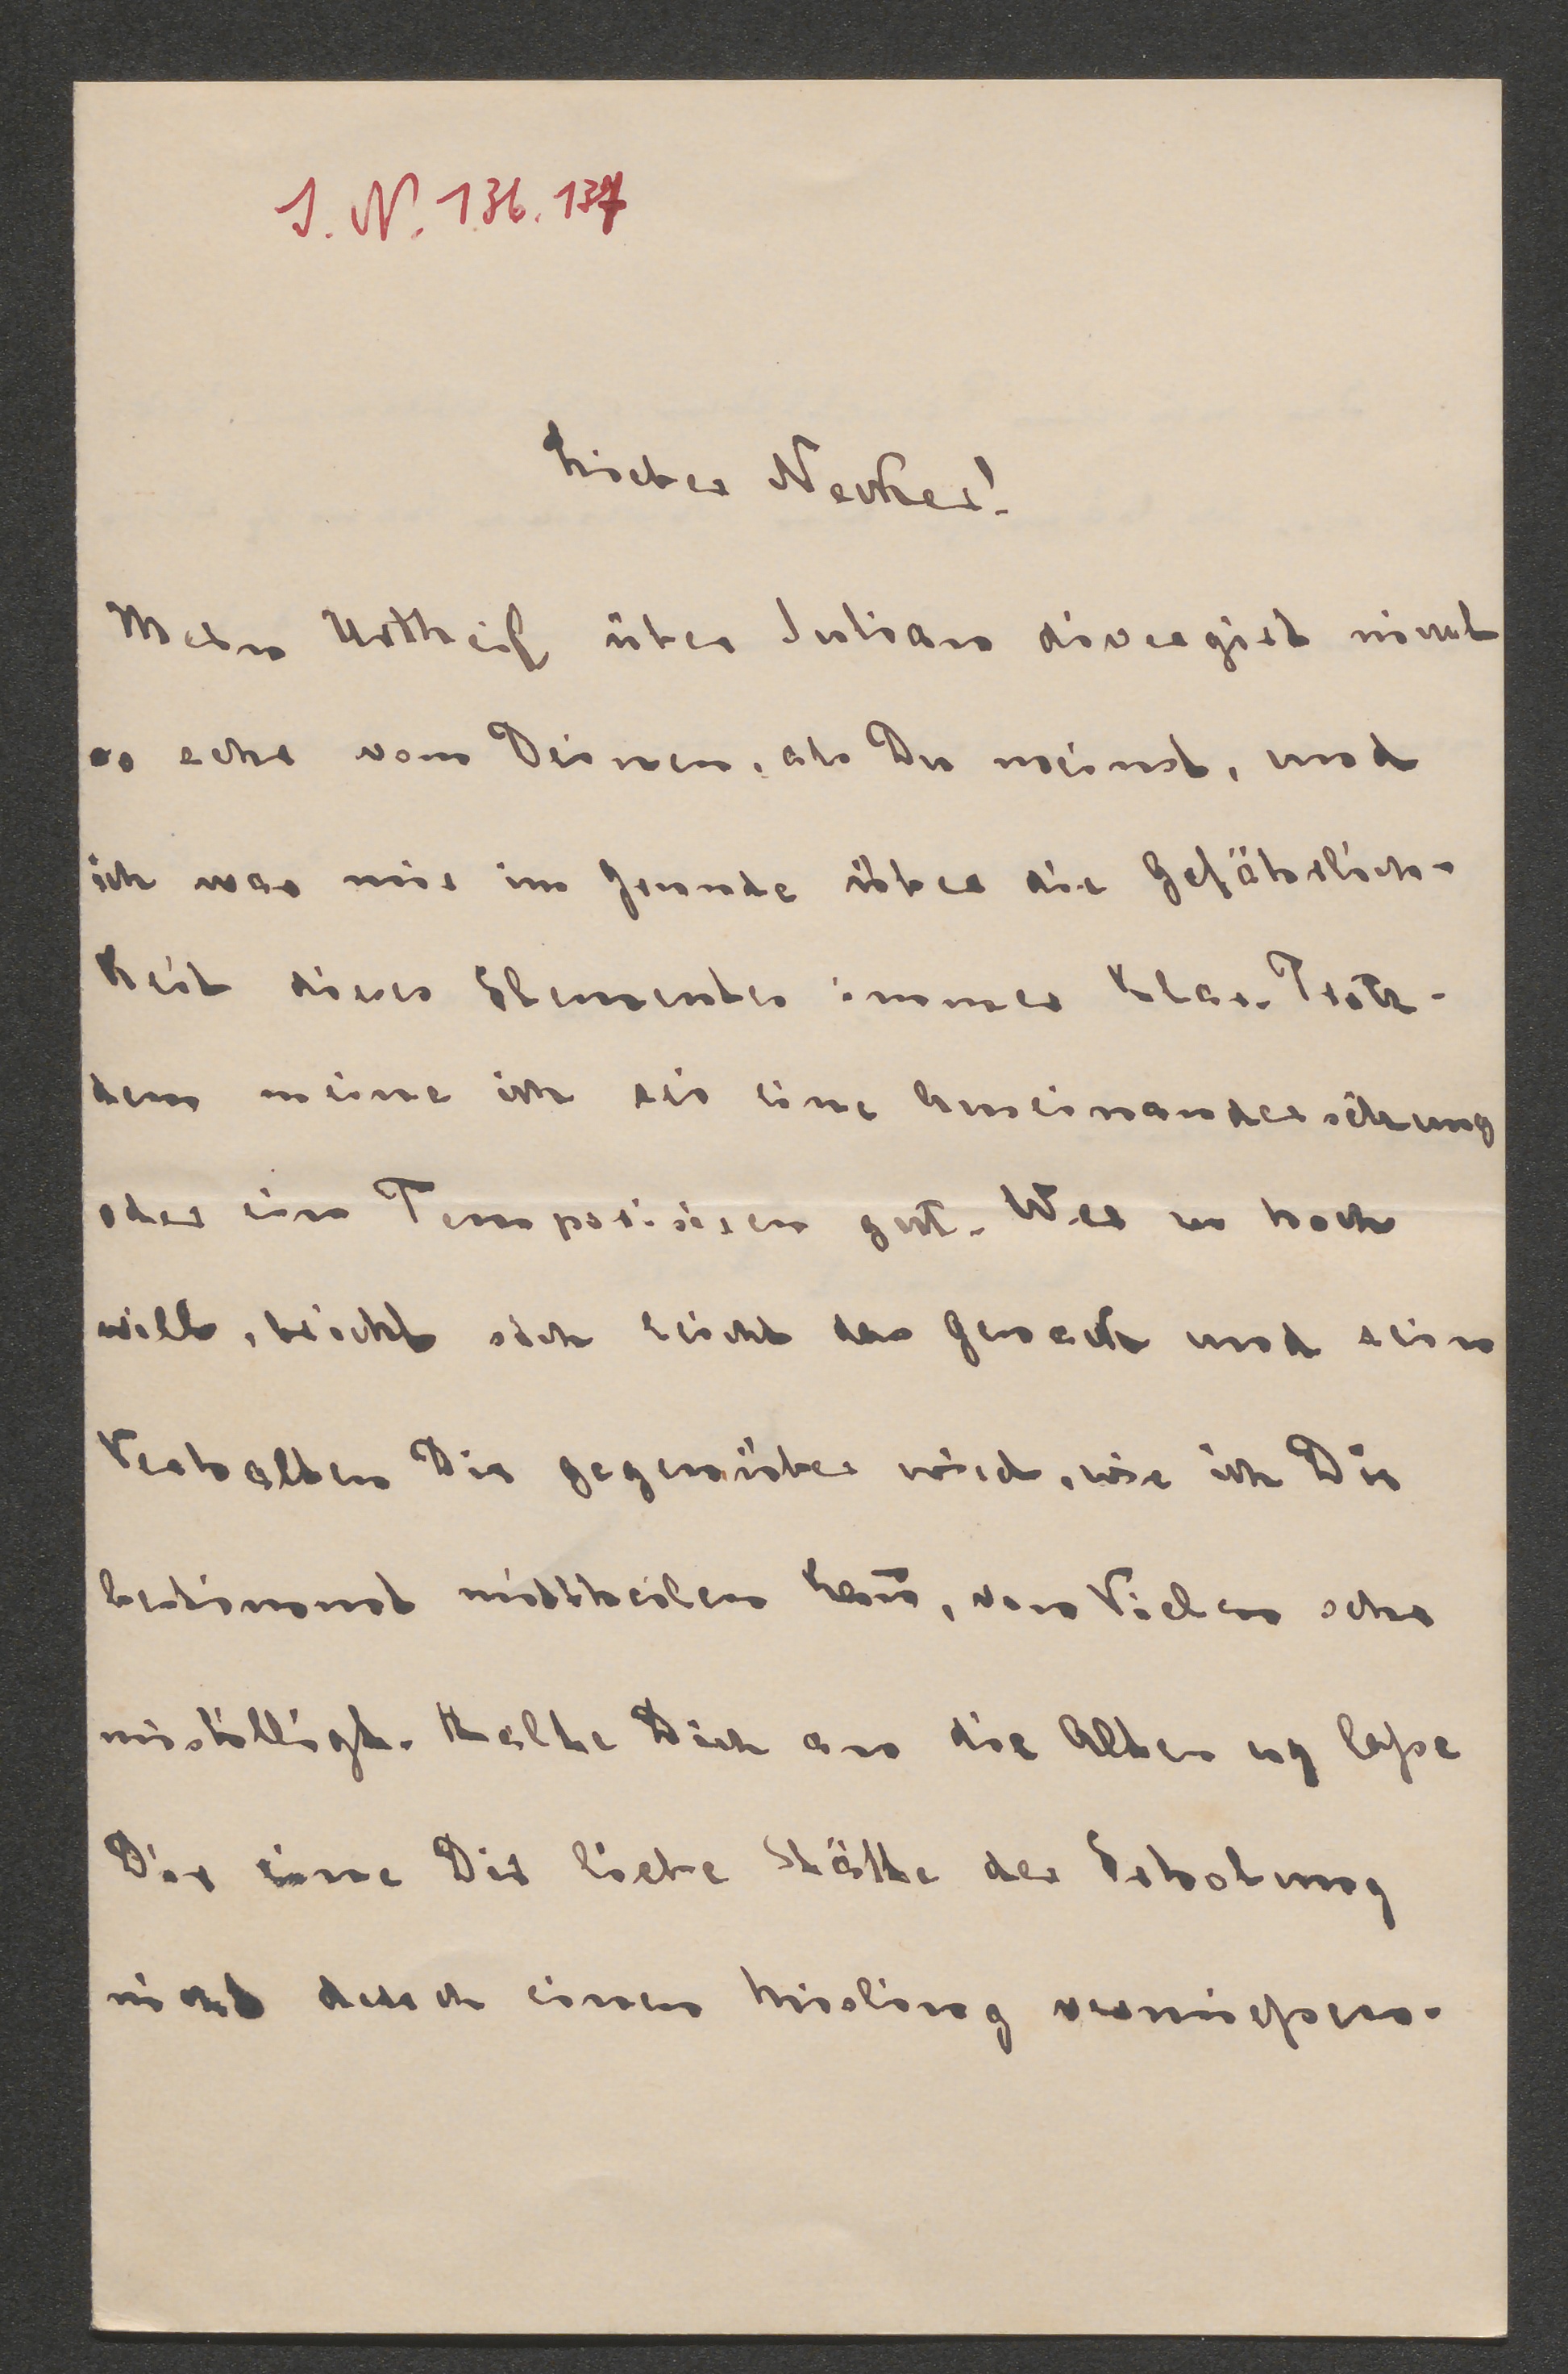 I. N. 136.137
Lieber Necker!
Mein Urtheil über Julian divergirt nicht
so sehr vom Deinen, als Du meinst, und
ich war mir im Grunde über die Gefährlich-
keit dieses Elementes immer klar. Trotz-
dem meine ich sei eine Auseinandersetzung
oder ein Temporisiren gut. Wer zu hoch
will, bricht sich leicht das Genack und sein
Verhalten Dir gegenüber wird, wie ich Dir
bestimmt mittheilen kann̄, von Vielen sehr
misbilligt. Halte Dich an die Alten u laße
Dir eine Dir liebe Stätte der Erholung
nicht durch einen vermießen.